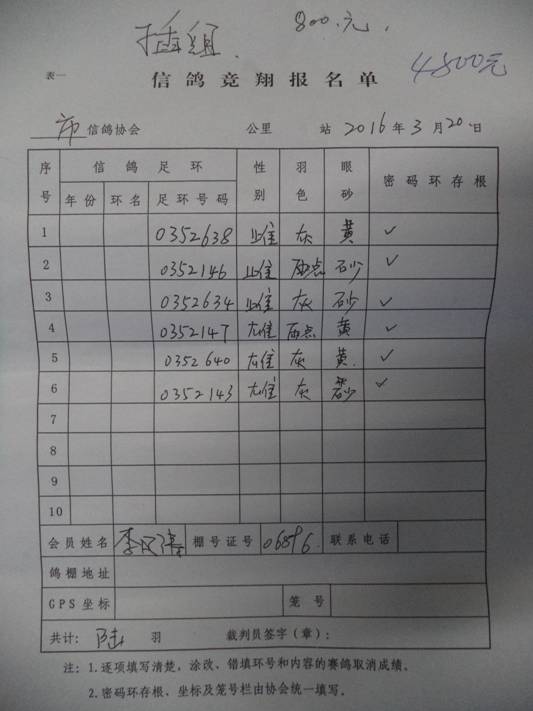 插组. 800.元.
4800元
表一
信鸽竞翔报名单
市信鸽协会 公里 站 2016年3月20日
序号 信鸽足环 性别 羽色 眼砂 密码环存根
年份 环名 足环号码
1 0352638 雌 灰 黄 ✓
2 0352146 雌 雨点 砂 ✓
3 0352634 雌 灰 砂 ✓
4 0352147 雄 雨点 黄 ✓
5 0352640 雄 灰 黄. ✓
6 0352143 雄 灰 ✓
7
8
9
10
会员姓名 李 棚号证号 06896. 联系电话
鸽棚地址
GPS坐标 笼号
共计: 陆 羽 裁判员签字(章):
注: 1.逐项填写清楚, 涂改、错填环号和内容的赛鸽取消成绩。
2.密码环存根、坐标及笼号栏由协会统一填写。